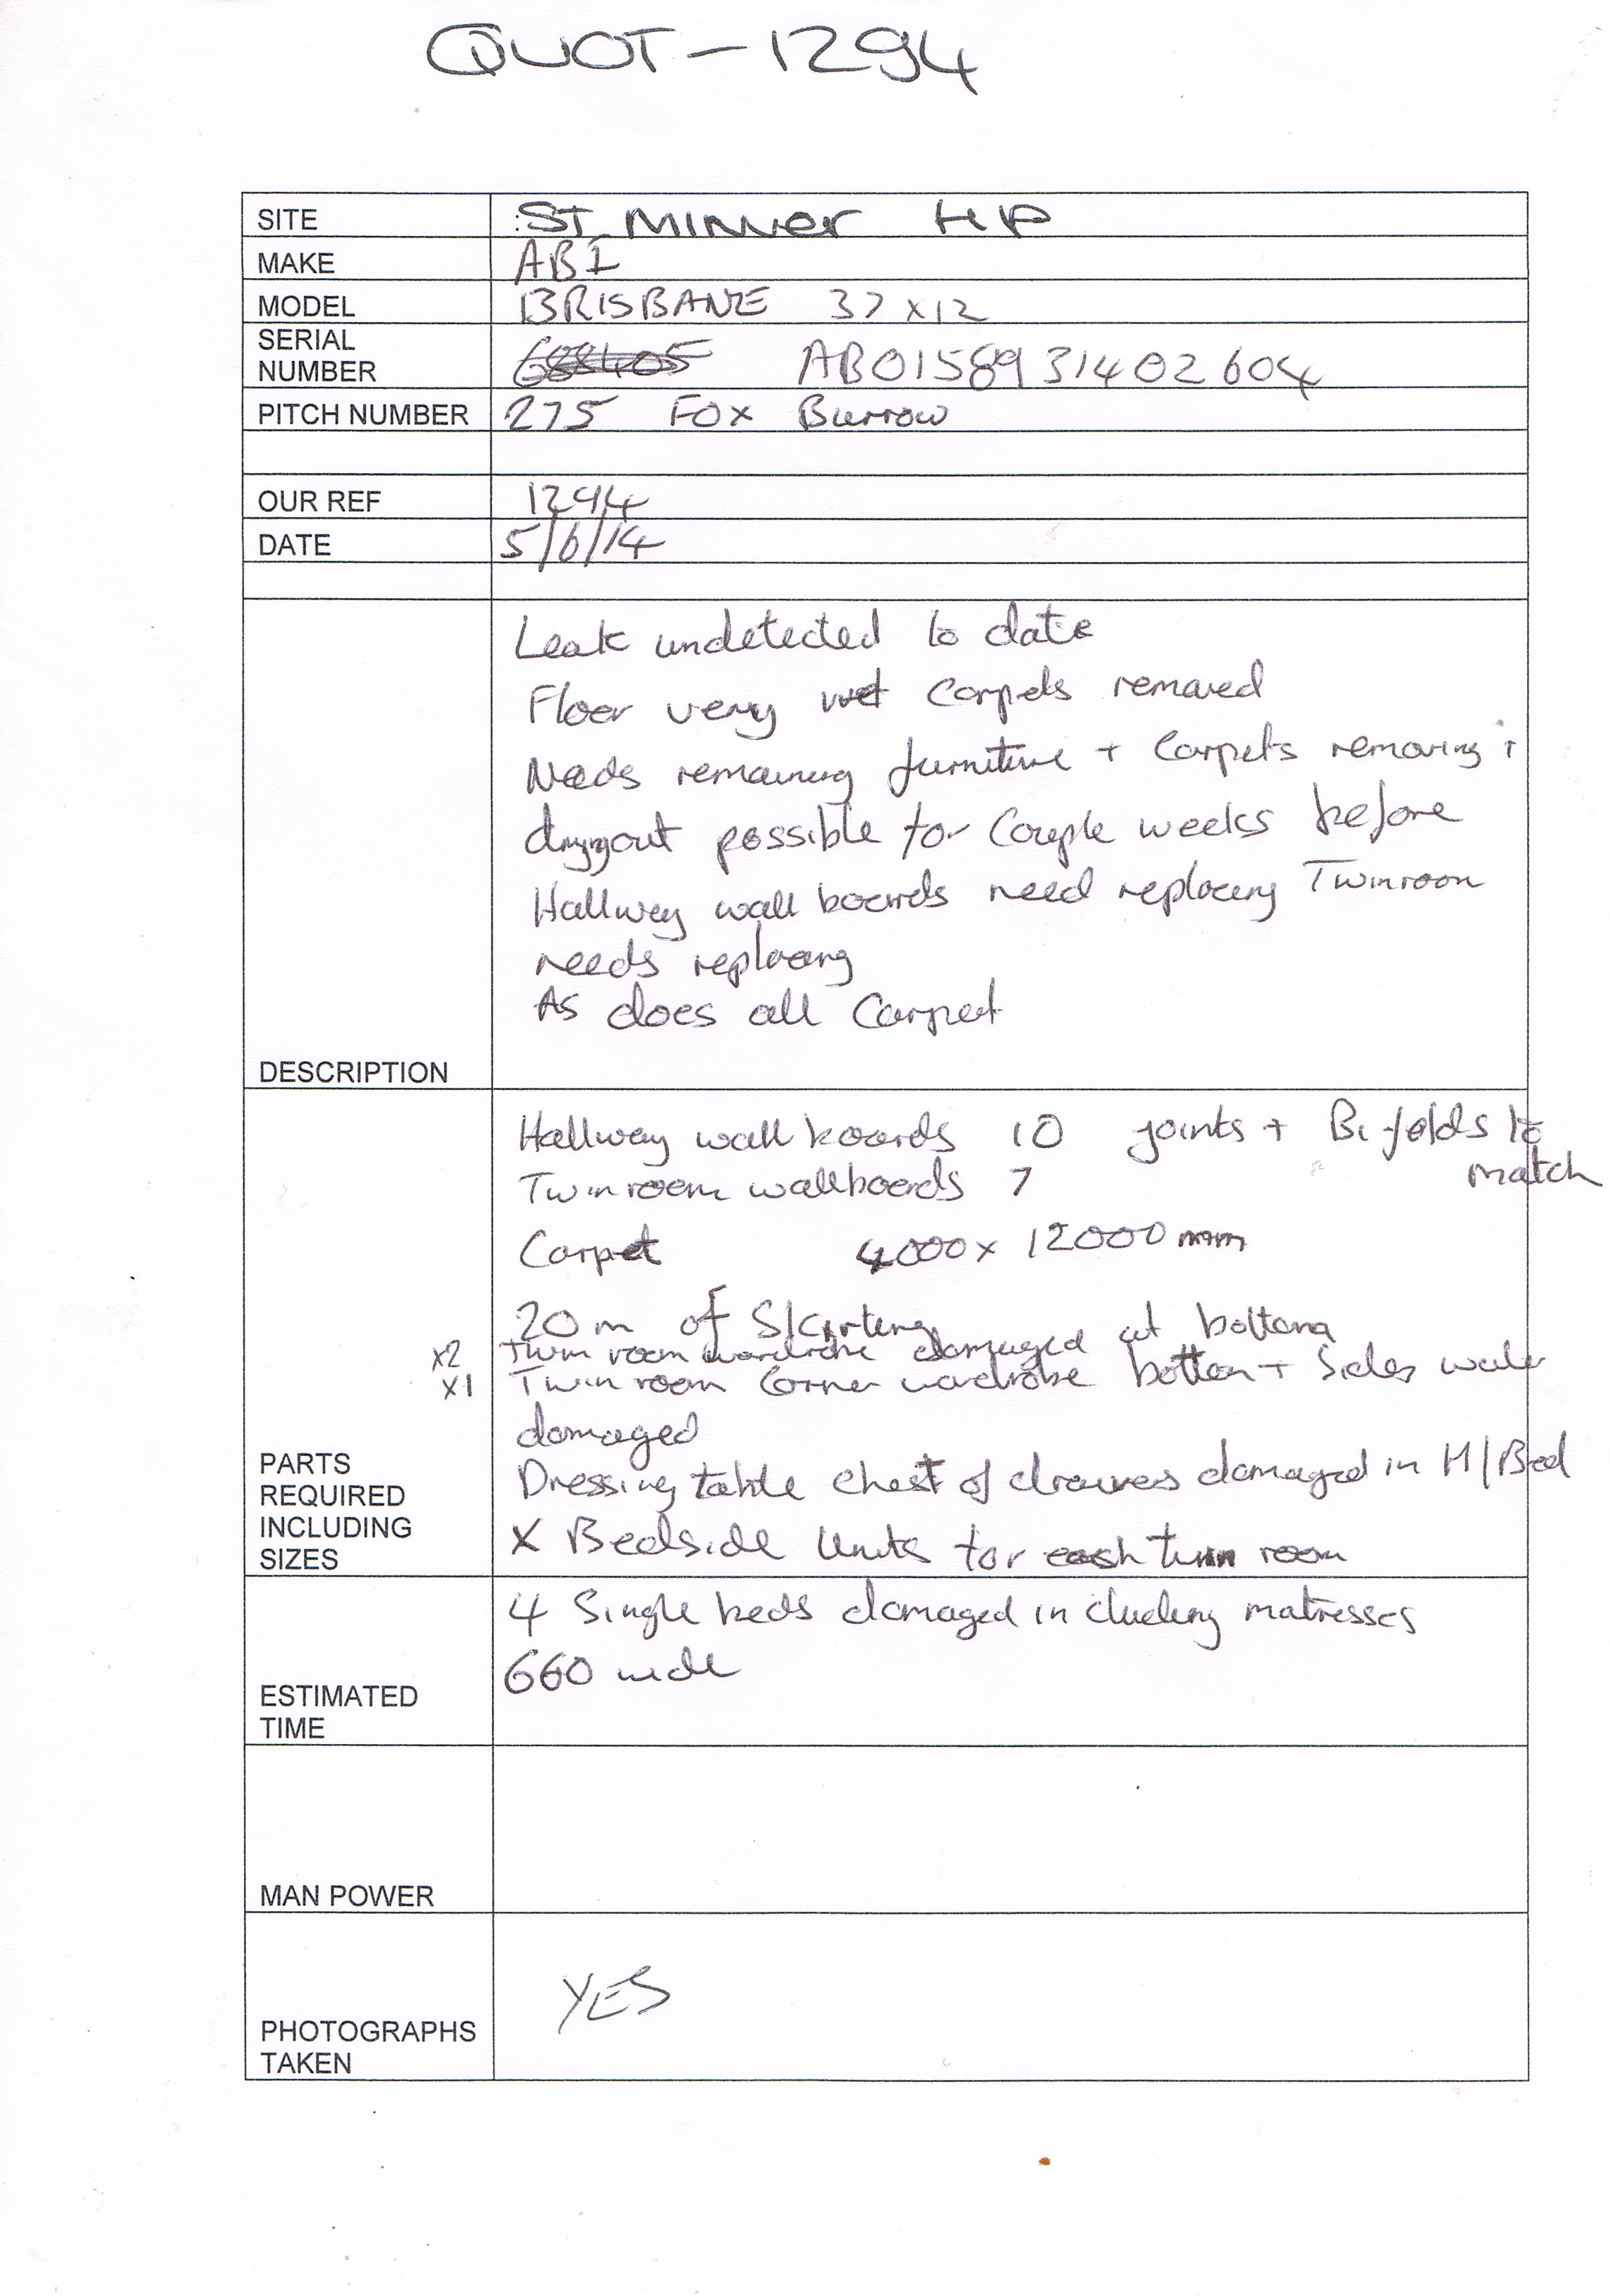 QUOT-1294
SITE :ST MINVER HP
MAKE ABI
MODEL BRISBANE 37 x 12
SERIAL
NUMBER 688405 AB0158931402604
PITCH NUMBER 275 Fox Burrow
OUR REF 1294
DATE 5/6/14
Leak undetected to date
Floor very wet Carpets removed
Needs remaining furniture + Carpets removing +
dryout possible for Couple weeks before
Hallway wall boards need replacing Twinroom
needs replacing
As does all Carpet
DESCRIPTION
Hallway wall boards 10 joints + Bi-folds to
match
Twin room wallboards 7
Carpet 4000 x 12000 mm
20m of Skirting
x2 Twin room wardrobe damaged at bottom
x1 Twin room Corner wardrobe bottom + Sides water
damaged
Dressing table chest of drawers damaged in M/Bed
X Bedside Units for each twin room
PARTS
REQUIRED
INCLUDING
SIZES
4 Single beds damaged including matresses
660 wide
ESTIMATED
TIME
MAN POWER
YES
PHOTOGRAPHS
TAKEN